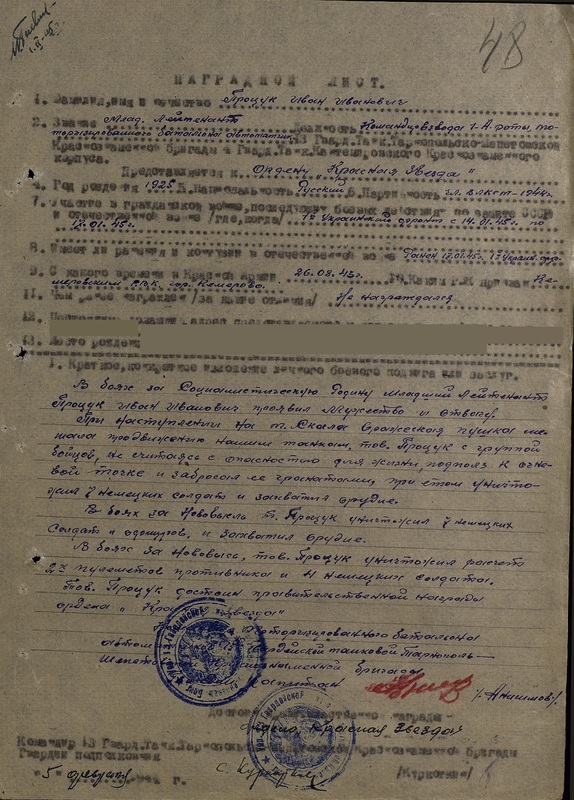 48
НАГРАДНОЙ ЛИСТ.
1. Фамилия, имя и отчество Процук Иван Иванович
2. Звание Млад. Лейтенант Должность Командир взвода 1-й роты, мо-
торизированного батальона автоматчик. 43 Гвард.Танк.Тарнопольско-Шепетовской
Краснознаменной бригады 4 Гвард.Танк.Кантемировского Краснознаменного
корпуса.
Представляется к Ордену "Красная Звезда"
4. Год рождения 1925 5. Национальность Русский 6. Партийность чл. ВЛКСМ-1944г.
7. Участие в гражданской войне, последующих боевых действиях по защите СССР
и отечественной войне /где, когда/ 1й Украинский фронт с 14.01.45г. по
17.01.45г.
8. Имеет ли ранения и контузии в отечественной войне Ранен 17.01.45г. 1й Украин. фр.
9. С какого времени в Красной Армии 26.08.43г. 10. Каким РВК призван Ке-
меровским РВК гор. Кемерово.
11. Чем ранее награжден /за какие отличия/ Не награждался
12.
13. Место рождения
1. Краткое, конкретное изложение личного боевого подвига или заслуг.
В боях за Социалистическую Родину младший Лейтенант
Процук Иван Иванович проявил мужество и отвагу.
При наступлении на м. Скала вражеская пушка ме-
шала продвижению нашим танкам, тов. Процук с группой
бойцов, не считаясь с опасностью для жизни, подполз к огне-
вой точке и забросал ее гранатами, при этом уничто-
жил 7 немецких солдат и захватил орудие.
В боях за т. Процук уничтожил 7 немецких
солдат и офицеров, и захватил орудие.
В боях за тов. Процук уничтожил расчет
2х пулеметов противника и 4 немецких солдата.
Тов. Процук достоин правительственной награды
ордена "Красная Звезда"
моторизированного батальона
автом. Гвардейской танковой Тарнополь-
Шепет Краснознаменной бригады
капитан /Анисимов/.
Достоин правительственной награды -
ордена Красная Звезда
Командир 43 Гвард.Танк.Тарнопольско-Шепетовской Краснознаменной бригады
Гвардии подполковник
"5" февраля г.